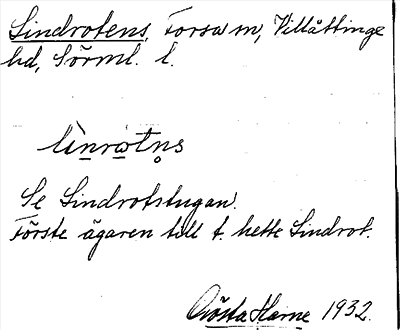 Lindrotens, Forsa sn, Villåttinge
hd, Sörml. l.
lìnrωtn̥s
Se Lindrotstugan.
Förste ägaren till t. hette Lindrot.
Gösta Harne 1932.